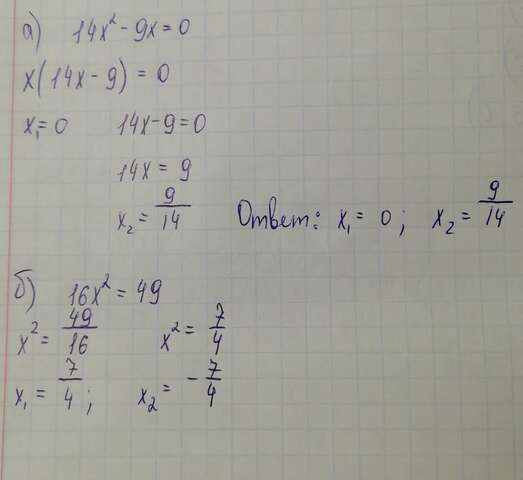 а) 14x² - 9x = 0
x(14x - 9) = 0
x₁ = 0 14x - 9 = 0
14x = 9
x₂ = 9/14 Ответ: x₁ = 0; x₂ = 9/14
б) 16x² = 49
x² = 49/16 x² = 7/4
x₁ = 7/4; x₂ = -7/4